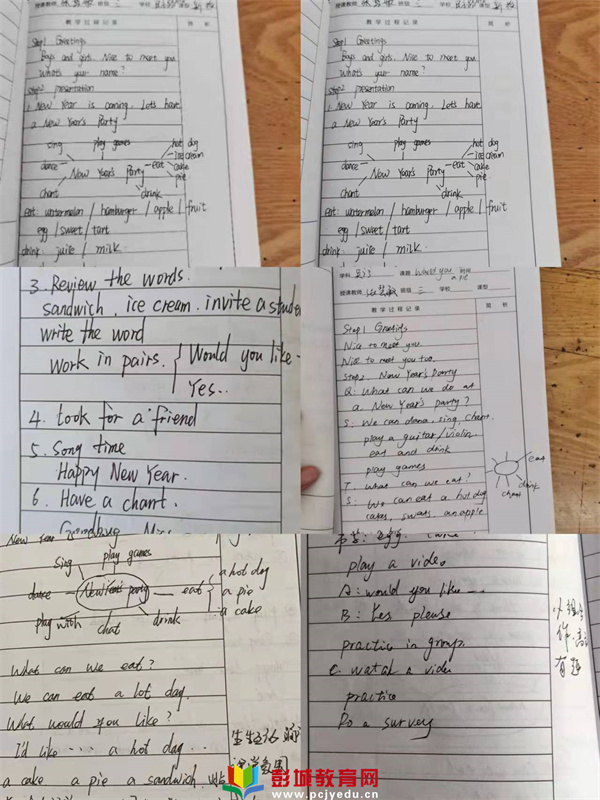 教学过程记录
赏析
Step1 Greetings
Boys and girls, Nice to meet you
What's your name?
Step2 presentation
1. New Year is coming, Lets have
a New Year's Party
sing
play games
hot dog
ice cream
cake
pie
dance
New Year's Party
eat
chant
drink
eat: watermelon / hamburger / apple / fruit
egg / sweet / tart
drink: juite / milk.
教学过程记录
赏析
Step1 Greetings
Boys and girls, Nice to meet you
What's your name?
Step2 presentation
1. New Year is coming, Lets have
a New Year's Party
sing
play games
hot dog
ice cream
cake
pie
dance
New Year's Party
eat
chant
drink
eat: watermelon / hamburger / apple / fruit
egg / sweet / tart
drink: juite / milk.
3. Review the words.
sandwich, ice cream. invite a stude
write the word
work in pairs. { Would you like
Yes..
4. Look for a friend
5. Song time
Happy New Year.
6. Have a chant.
学科 课题 Would you
a pie
授课教师 班级 三 学校 课型
教学过程记录
赏析
Step1 Greetings
Nice to meet you.
Nice to meet you too.
Step2. New Year's Party
Q: What can we do at
a New Year's party?
S: We can dana, sing, chant.
play a guitar/violin.
eat and drink
play games
T: What can we eat?
S: We can eat a hot dog
cakes, swats, an apple
eat
drink
chant
sing
play games
dance
New Year's party
eat
a hot dog
a pie
a cake
play with
chat
drink
What can we eat?
We can eat a lot day.
What would you like?
I'd like ... a hot dog...
a cake a pie a sandwich.
play a video
A: would you like ...
B: Yes please
practice in group.
C. watch a video
practice
Do a survey
彭城教育网
www.pcjyedu.cn